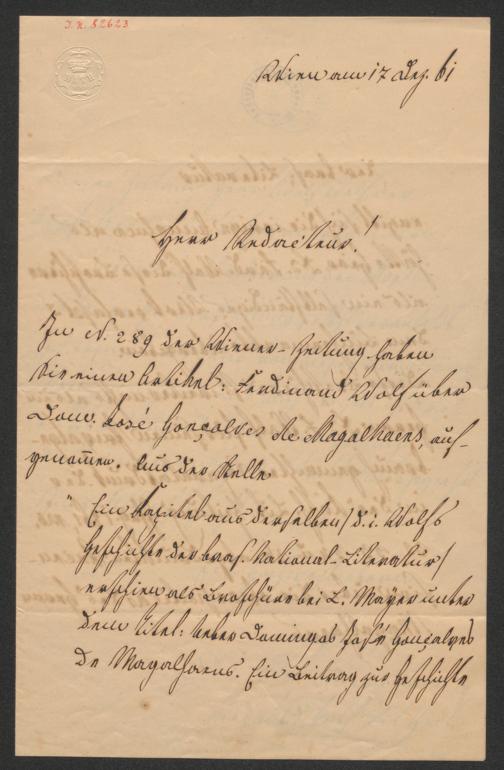 I. N. 52623
Wien am 17 Dez. 61
Herr Redacteur!
In N. 289 der Wiener-Zeitung haben
Sie einen Artikel: Ferdinand Wolf über
Dom. José Gonçalves de Magalhaens, auf-
genommen. Aus der Stelle
" Ein Kapitel aus derselben / d. i. Wolfs
Geschichte der bras. National-Literatur /
erschien als Broschüre bei L. Mayer unter
dem Titel: Ueber Domingos José Gonçalves
de Magalhaens. Ein Beitrag zur Geschichte